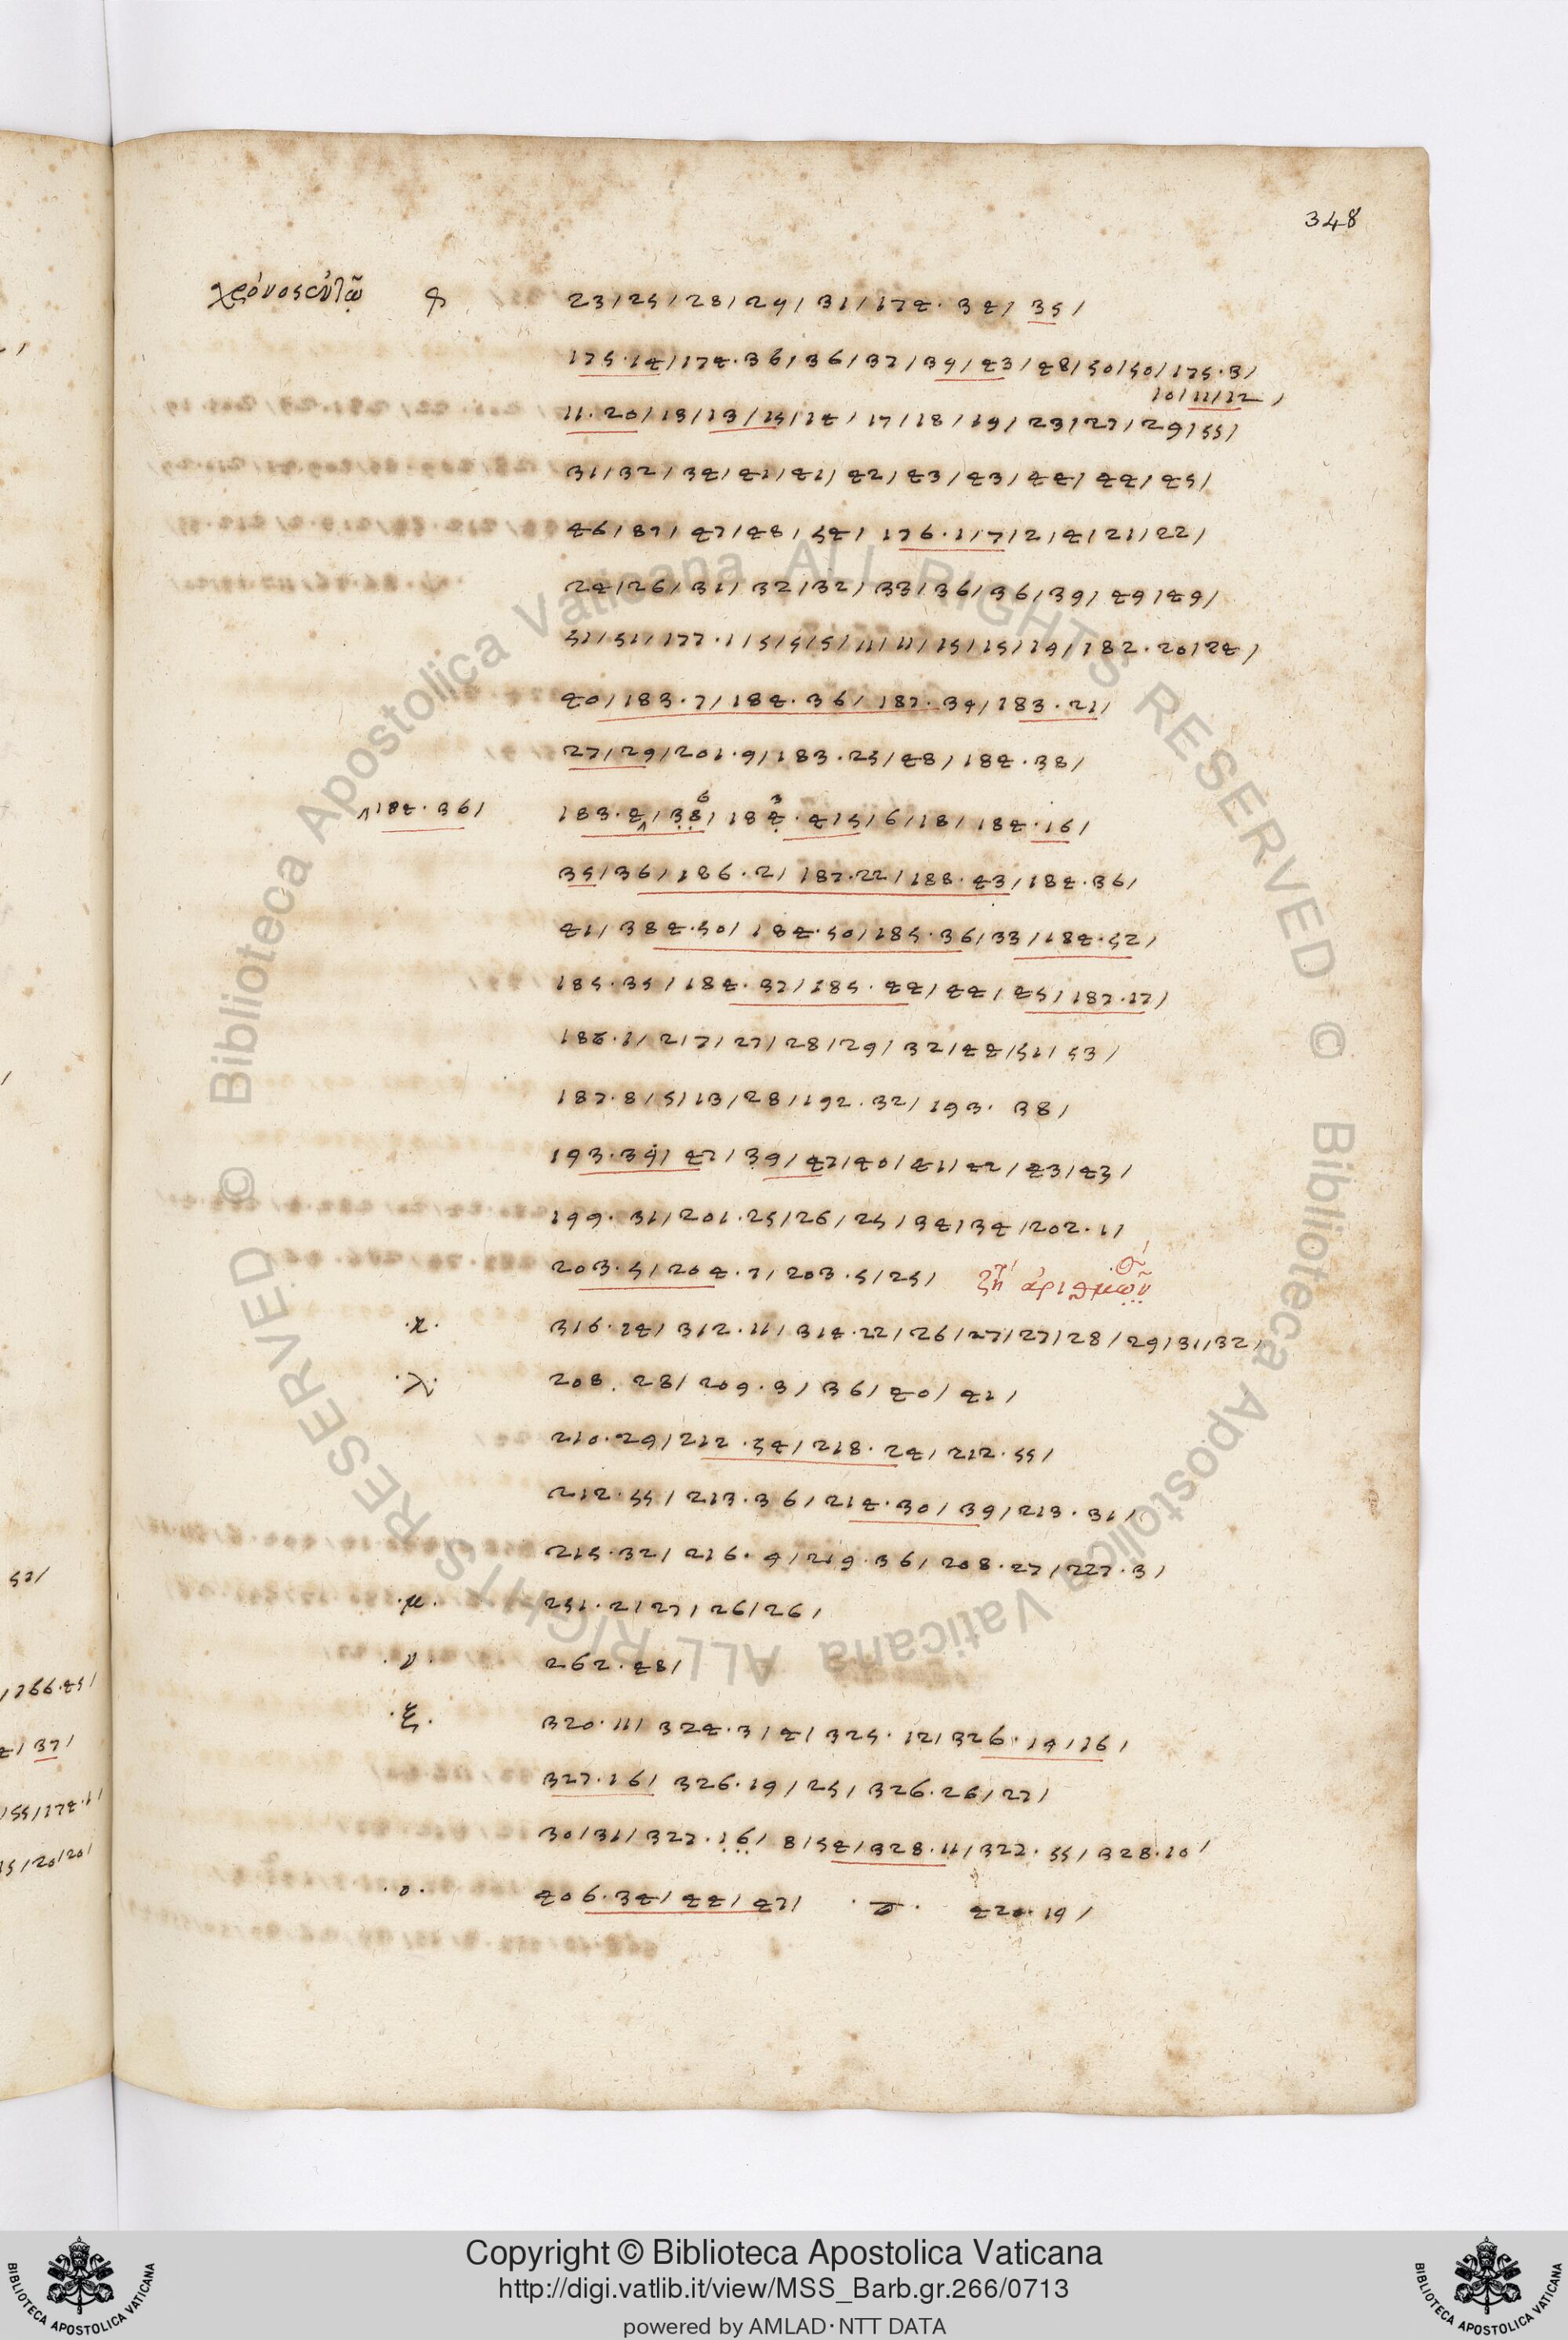 348
χρόνος ἐν τῷ 23/25/28/29/31/174·34/35/
175·14/174·36/36/37/39/43/48/50/50/175·3/
10/11/12/
11·20/13/13/15/14/17/18/19/23/27/29/55/
31/32/34/41/41/42/43/43/44/44/45/
46/87/47/48/54/176·1/7/2/4/21/22/
24/26/31/32/32/33/36/36/39/49/49/
51/51/177·1/5/5/5/11/11/15/15/19/182·20/24/
40/183·7/184·36/187·34/183·21/
27/29/201·9/183·25/48/184·38/
184·36/ 183·4/38/184·4/5/6/18/184·16/
35/36/186·2/187·22/188·43/184·36/
41/384·50/184·50/185·36/33/184·52/
185·35/184·37/185·44/44/45/187·17/
186·1/2/7/27/28/29/32/44/51/53/
187·8/5/13/28/192·32/193·38/
193·39/47/39/47/40/41/42/43/43/
199·31/201·25/26/25/34/34/202·1/
203·5/204·7/203·5/25/ ἀριθμῶν
·κ· 316·14/312·11/314·22/26/27/27/28/29/31/32/
·λ· 208·28/209·3/36/40/41/
210·29/212·54/218·24/212·55/
212·55/213·36/214·30/39/213·31/
215·32/216·9/219·36/208·27/227·3/
·μ· 251·2/27/26/26/
·ν· 262·48/
·ξ· 320·11/324·3/4/325·12/326·19/16/
327·16/326·19/25/326·26/27/
30/31/327·16/8/54/328·11/327·55/328·10/
·ο· 406·34/44/47/ 420·19/
52/
/266·45/
4/37/
/55/174·1/
15/20/20/
© Biblioteca Apostolica Vaticana ALL RIGHTS RESERVED © Biblioteca Apostolica Vaticana ALL RIGHTS RESERVED
Copyright © Biblioteca Apostolica Vaticana
http://digi.vatlib.it/view/MSS_Barb.gr.266/0713
powered by AMLAD·NTT DATA
BIBLIOTECA APOSTOLICA VATICANA
BIBLIOTECA APOSTOLICA VATICANA